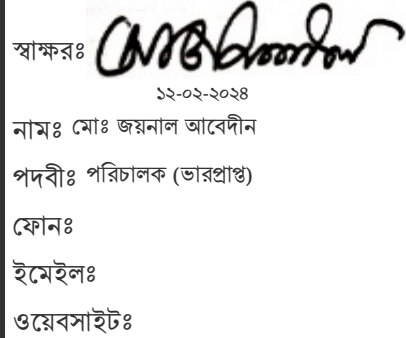 স্বাক্ষরঃ
১২-০২-২০২৪
নামঃ মোঃ জয়নাল আবেদীন
পদবীঃ পরিচালক (ভারপ্রাপ্ত)
ফোনঃ
ইমেইলঃ
ওয়েবসাইটঃ